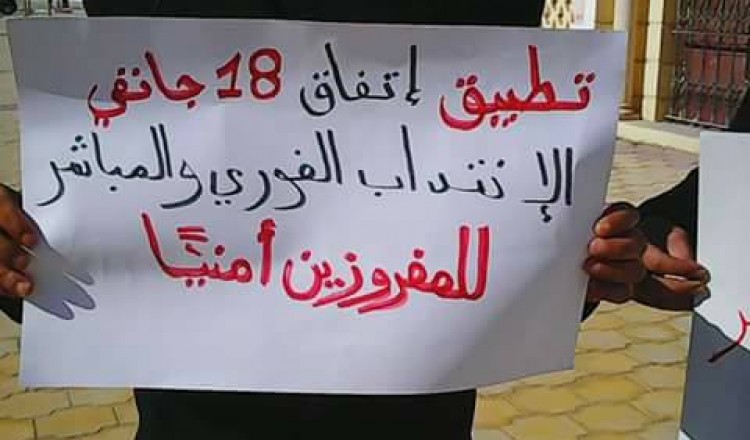 تطبيق إتفاق 18 جانفي
الإنتداب الفوري والمباشر
للمفروزين أمنيًا